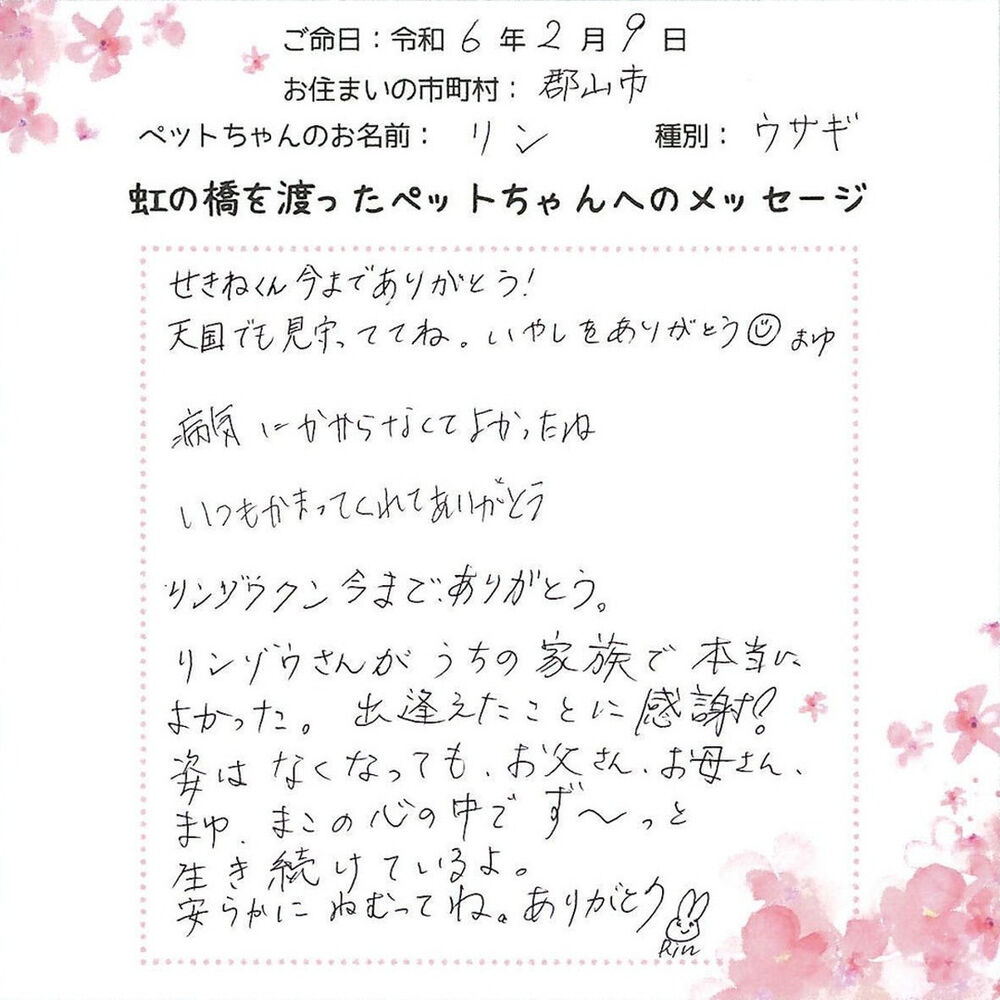 ご命日：令和 6 年 2 月 9 日
お住まいの市町村： 郡山市
ペットちゃんのお名前： リン 種別： ウサギ
虹の橋を渡ったペットちゃんへのメッセージ
せきねくん今までありがとう!
天国でも見守っててね。いやしをありがとう☺ まゆ
病気にかからなくてよかったね
いつもかまってくれてありがとう
リンゾウクン今までありがとう。
リンゾウさんがうちの家族で本当に
よかった。出逢えたことに感謝!
姿はなくなっても、お父さん、お母さん、
まゆ、まこの心の中でず〜っと
生き続けているよ。
安らかにねむってね。ありがとう
Rin